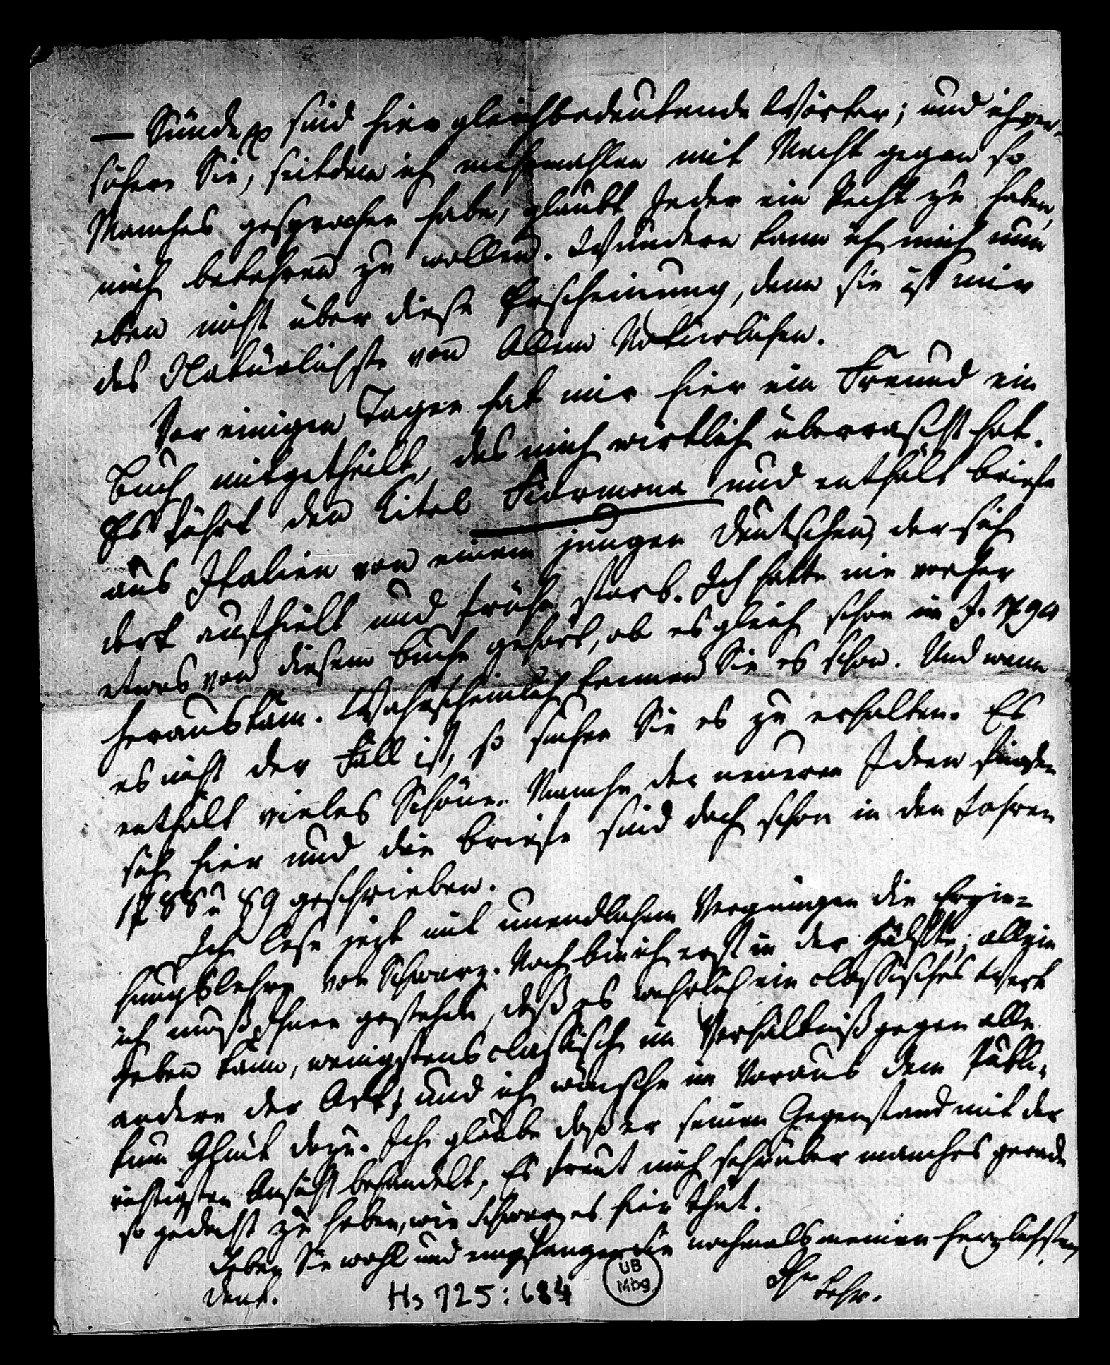 — Sünde pp sind hier gleichbedeutende Wörter; und ich ver-
sichere Sie, seitdem ich mehrmahlen mit Macht gegen so
Manches gesprochen habe, glaubt Jeder ein Recht zu haben,
mich bekehren zu wollen. Wundern kann ich mich nun
eben nicht über diese Erscheinung, denn sie ist mir
das Natürlichste von Allem Natürlichen.
Vor einigen Tagen hat mir hier ein Freund ein
Buch mitgetheilt, das mich wirklich überrascht hat.
Es führt den Titel Fiormona und enthält Briefe
aus Italien von einem jungen Deutschen, der sich
dort aufhielt und frühe starb. Ich hatte nie vorher
etwas von diesem Buche gehört, ob es gleich schon im J. 1794
herauskam. Wahrscheinlich kennen Sie es schon. Und wenn
es nicht der Fall ist, so suchen Sie es zu erhalten. Es
enthält vieles Schöne. Manche der neueren Ideen finden
sich hier und die Briefe sind doch schon in den Jahren
1788 u 89 geschrieben.
Ich lese jezt mit unendlichem Vergnügen die Erzie-
hungslehre von Schwarz. Noch bin ich erst in der Hälfte; allein
ich muß Ihnen gestehen, daß es wahrlich ein classisches Werk
geben kann, wenigstens classisch im Verhältniß gegen alle
andere der Art; und ich wünsche im Voraus dem Publi-
kum Glück dazu. Ich glaube daß er seinen Gegenstand mit der
richtigsten Ansicht behandelt, Es freut mich sehr über manches gerade
so gedacht zu haben, wie Schwarz es hier that.
Leben Sie wohl und empfangen Sie nochmals meinen herzlichsten
Dank.
Ihr
Hs 725:684
UB
Mbg